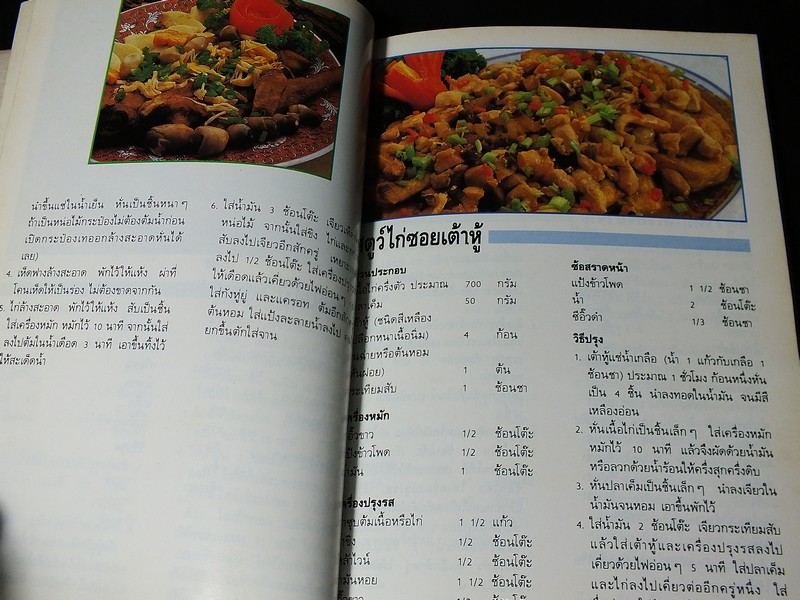 นำขึ้นแช่ในน้ำเย็น หั่นเป็นชิ้นหนาๆ
ถ้าเป็นหน่อไม้กระป๋องไม่ต้องต้มน้ำก่อน
เปิดกระป๋องเทออกล้างสะอาดหั่นได้
เลย)
4. เห็ดฟางล้างสะอาด พักไว้ให้แห้ง ผ่าที่
โคนเห็ดให้เป็นร่อง ไม่ต้องขาดจากกัน
5. ไก่ล้างสะอาด พักไว้ให้แห้ง สับเป็นชิ้น
ใส่เครื่องหมัก หมักไว้ 10 นาที จากนั้นใส่
ลงไปต้มในน้ำเดือด 3 นาที เอาขึ้นทิ้งไว้
ให้สะเด็ดน้ำ
6. ใส่น้ำมัน 3 ช้อนโต๊ะ เจียว
หน่อไม้ จากนั้นใส่ขิง ไก่และ
สับลงไปเจียวอีกสักครู่
ลงไป 1/2 ช้อนโต๊ะ ใส่เครื่อง
ให้เดือดแล้วเคี่ยวด้วยไฟอ่อนๆ
ใส่กังหู่ยู่ และแครอท ต้มอีก
ต้นหอม ใส่แป้งละลายน้ำลงไป
ยกขึ้นตักใส่จาน
ตูว์ไก่ซอยเต้าหู้
ประกอบ
ไก่ครึ่งตัว ประมาณ 700 กรัม
เค็ม 50 กรัม
หู้ (ชนิดสีเหลือง
ลือกหนาเนื้อนิ่ม) 4 ก้อน
ฉ่ายหรือต้นหอม
ฝอย) 1 ต้น
ะเทียมสับ 1 ช้อนชา
ครื่องหมัก
อิ๊วขาว 1/2 ช้อนโต๊ะ
ป้งข้าวโพด 1/2 ช้อนโต๊ะ
มัน 1 ช้อนโต๊ะ
ครื่องปรุงรส
ซุปต้มเนื้อหรือไก่ 1 1/2 แก้ว
ขิง 1/2 ช้อนโต๊ะ
ล้าไวน์ 1/2 ช้อนโต๊ะ
มันหอย 1 1/2 ช้อนโต๊ะ
1/2 ช้อนโต๊ะ
ซ้อสราดหน้า
แป้งข้าวโพด 1 1/2 ช้อนชา
น้ำ 2 ช้อนโต๊ะ
ซีอิ๊วดำ 1/3 ช้อนชา
วิธีปรุง
1. เต้าหู้แช่น้ำเกลือ (น้ำ 1 แก้วกับเกลือ 1
ช้อนชา) ประมาณ 1 ชั่วโมง ก้อนหนึ่งหั่น
เป็น 4 ชิ้น นำลงทอดในน้ำมัน จนมีสี
เหลืองอ่อน
2. หั่นเนื้อไก่เป็นชิ้นเล็กๆ ใส่เครื่องหมัก
หมักไว้ 10 นาที แล้วจึงผัดด้วยน้ำมัน
หรือลวกด้วยน้ำร้อนให้ครึ่งสุกครึ่งดิบ
3. หั่นปลาเค็มเป็นชิ้นเล็กๆ นำลงเจียวใน
น้ำมันจนหอม เอาขึ้นพักไว้
4. ใส่น้ำมัน 2 ช้อนโต๊ะ เจียวกระเทียมสับ
แล้วใส่เต้าหู้และเครื่องปรุงรสลงไป
เคี่ยวด้วยไฟอ่อนๆ 5 นาที ใส่ปลาเค็ม
และไก่ลงไปเคี่ยวต่ออีกครู่หนึ่ง ใส่